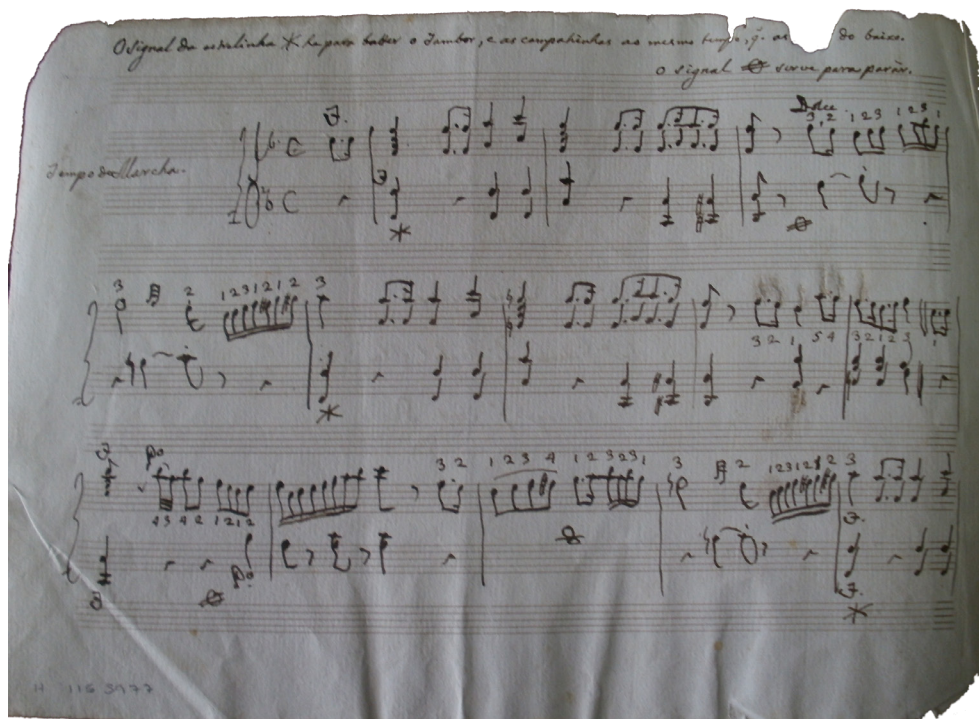 O signal da estrelinha * he para bater o Tambor, e as campainhas ao mesmo tempo, q. as do baixo.
O signal serve para parár.
Tempo de Marcha.
F.
Dolce
3 2 1 2 3 1 2 3 1
F
3 2 1 2 3 1 2 1 2 3
3 2 1 5 4 3 2 1 2 3 1
F. Po 3 2 1 2 3 4 1 2 3 2 3 1 3 2 1 2 3 1 2 1 2 3
4 3 4 2 1 2 1 2
F.
Po
F
F.
H 115 3977